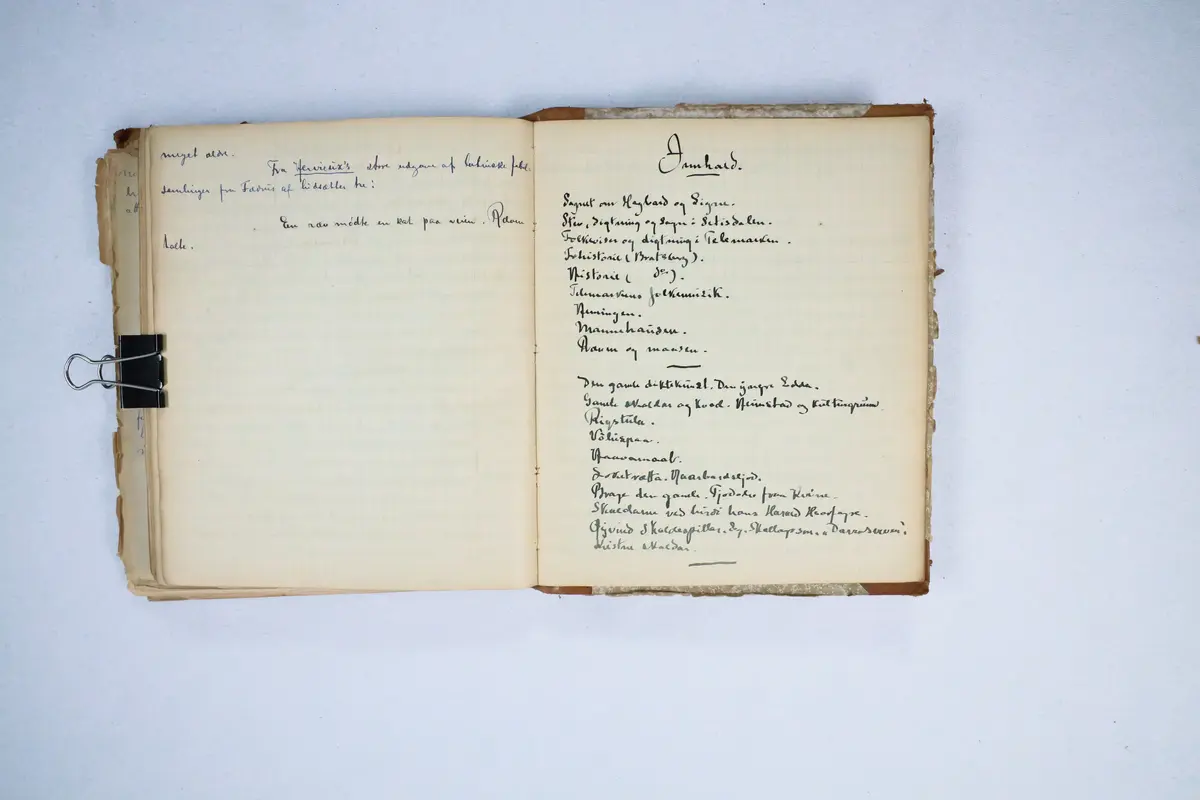 meget ældre.
Fra Hervieux's store udgave af latinske fabel
samlinger fra Fædrus af hidsættes her:
En ræv mødte en kat paa veien. Ræven
talte.
Innhald.
Sagnet om Hagbard og Signe.
Stev, digtning og sagn i Setisdalen.
Folkeviser og digtning i Telemarken.
Forhistorie (Bratsberg).
Historie ( do ).
Telemarkens folkemusik.
Hemingen.
Mannehausen.
Ræven og maasen.
Den gamle diktekunst. Den yngre Edda.
Gamle skaldar og kvad. Heimstad og kulturgrunn
Rigstula.
Völuspaa.
Haavamaal.
Lokætrætta. Haarbardsljod.
Brage den gamle. Tjodolv fraa Kvine.
Skaldarne ved hirdi hans Harald Haarfagre.
Øyvind Skaldespillar. Eg. Skallagrimson. "Darraderveri"
Kristne skaldar.